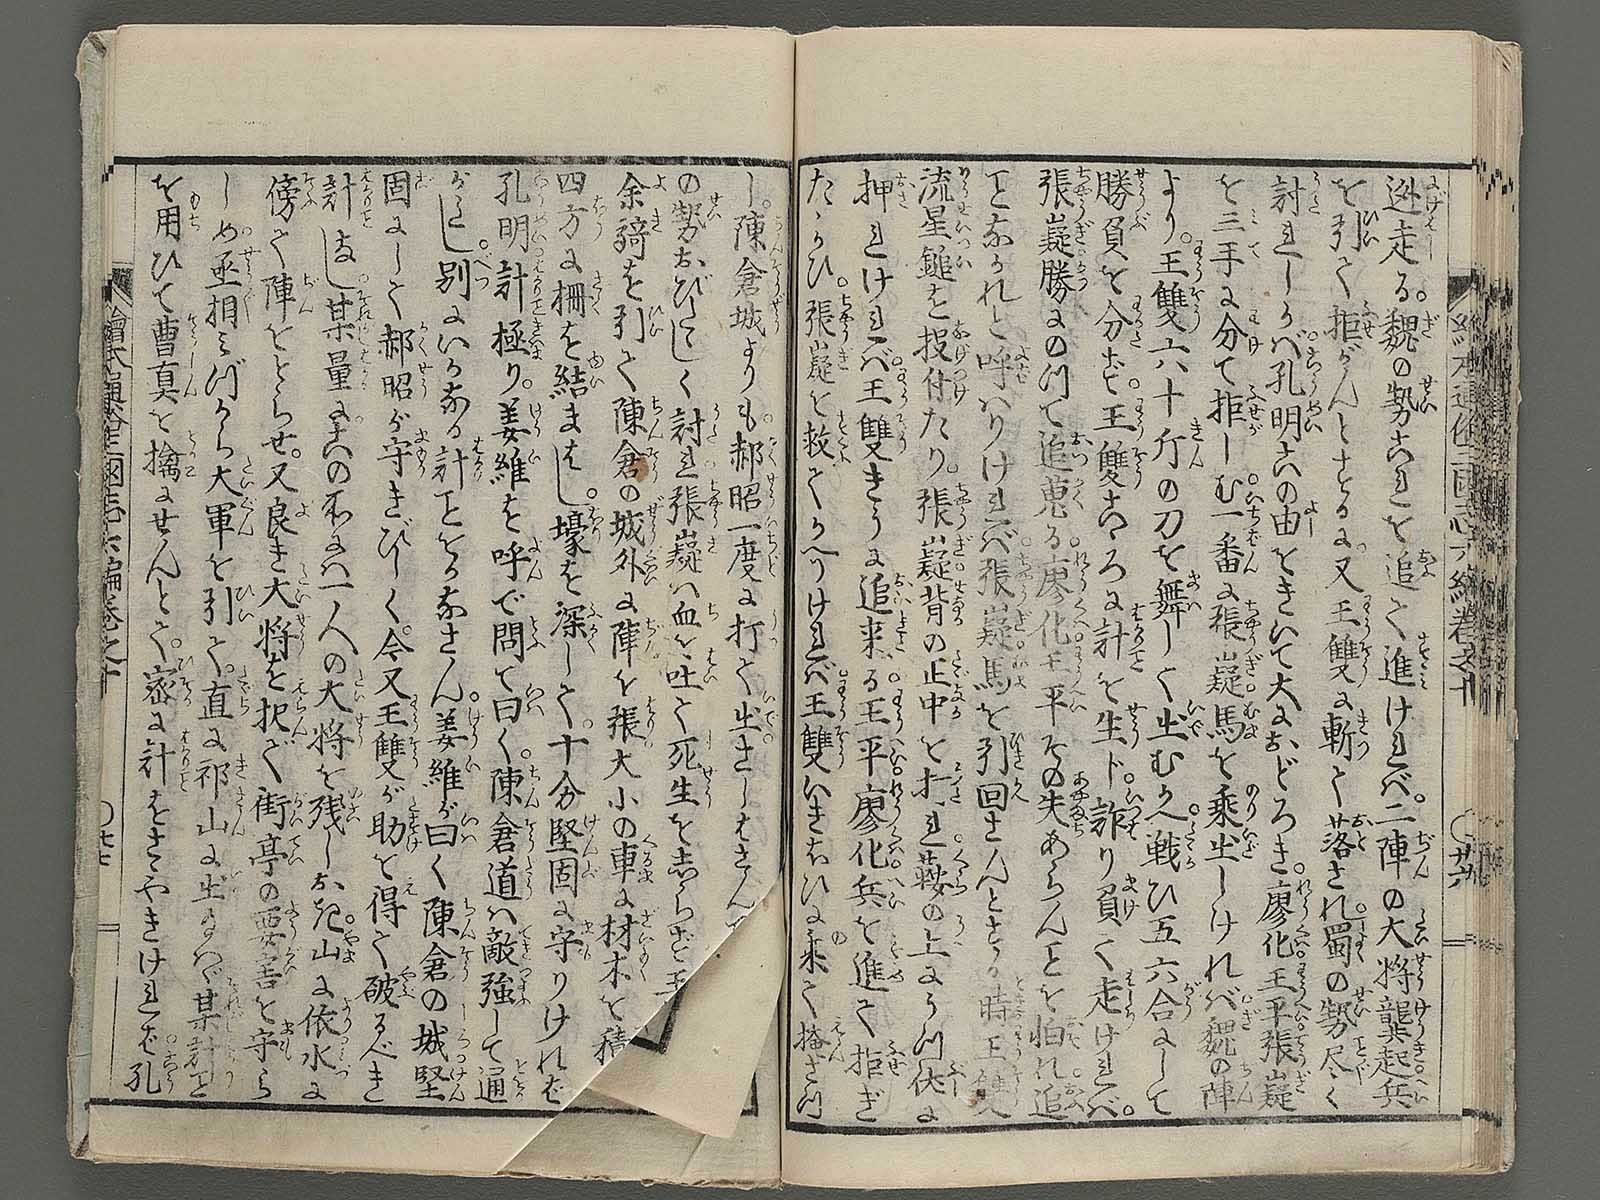 迯走る。魏の勢これを追て進けれバ。二陣の大将龔起兵
を引て拒がんとするに又王雙に斬て落され。蜀の勢尽く
討れしかバ孔明此の由をきいて大におどろき。廖化王平張嶷
を三手に分て拒しむ一番に張嶷馬を乗出しけれバ魏の陣
より。王雙六十斤の刀を舞して出むかへ。戦ひ五六合にして
勝負を分たず王雙こゝろに計を生ド。詐り負て走ければ。
張嶷勝にのつて追蒐る廖化王平その失あらんことを怕れ追
ことなかれと呼はりけれバ張嶷馬を引回さんとする時王雙
流星鎚を投付たり。張嶷背の正中を打れ鞍の上にうつ伏に
押れけれバ王雙きうに追来る王平廖化兵を進て拒ぎ
たゝかひ。張嶷を救てかへりけれバ王雙いきほひに乗て掩さつ
し。陳倉城よりも郝昭一度に打て出さしはさん
の勢おびたゝしく討れ張嶷ハ血を吐て死生をしらず王
余騎を引て陳倉の城外に陣を張大小の車に材木を積
四方に柵を結まはし。壕を深して。十分堅固に守りけれど
孔明計極り。姜維を呼で問て曰く。陳倉道ハ敵強して通
がたし。別にいかなる計ことをかなさん。姜維が曰く陳倉の城堅
固にして郝昭が守きびしく。今又王雙が助を得て破るべき
計なし某量に此の所にハ一人の大将を残しおき。山に依水に
傍て陣をとらせ。又良き大将を択で街亭の要害を守ら
しめ丞相みづから大軍を引て。直に祁山に出るハヾ某計こと
を用ひて曹真を擒にせんとて。密に計をさゝやきけれバ孔
繪本通俗三國志六編巻之十
〇廿六
繪本通俗三國志六編巻之十
〇廿七